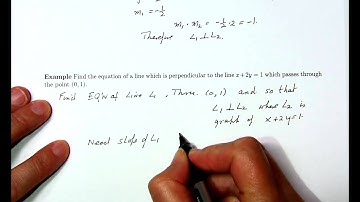 m₁ = -½
m₁ · m₂ = -½ · 2 = -1.
Therefore L₁ ⊥ L₂
Example Find the equation of a line which is perpendicular to the line x + 2y = 1 which passes through
the point (0, 1).
Find EQ'N of Line L₁, Thru (0,1) and so that
L₁ ⊥ L₂ where L₂ is
graph of x+2y=1.
Need slope of L₁